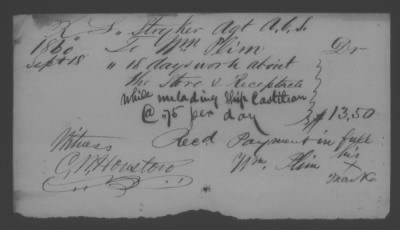 R. S. Stryker Agt A.C.S.
1860 To Wm Plim Dr
Sept 18 " 18 days work about
the Store & Receptacle
while unloading Ship Castilian
@ .75 per day $13.50
Witness Recd Payment in full
C. R. Houston Wm. Plim his
X
mark